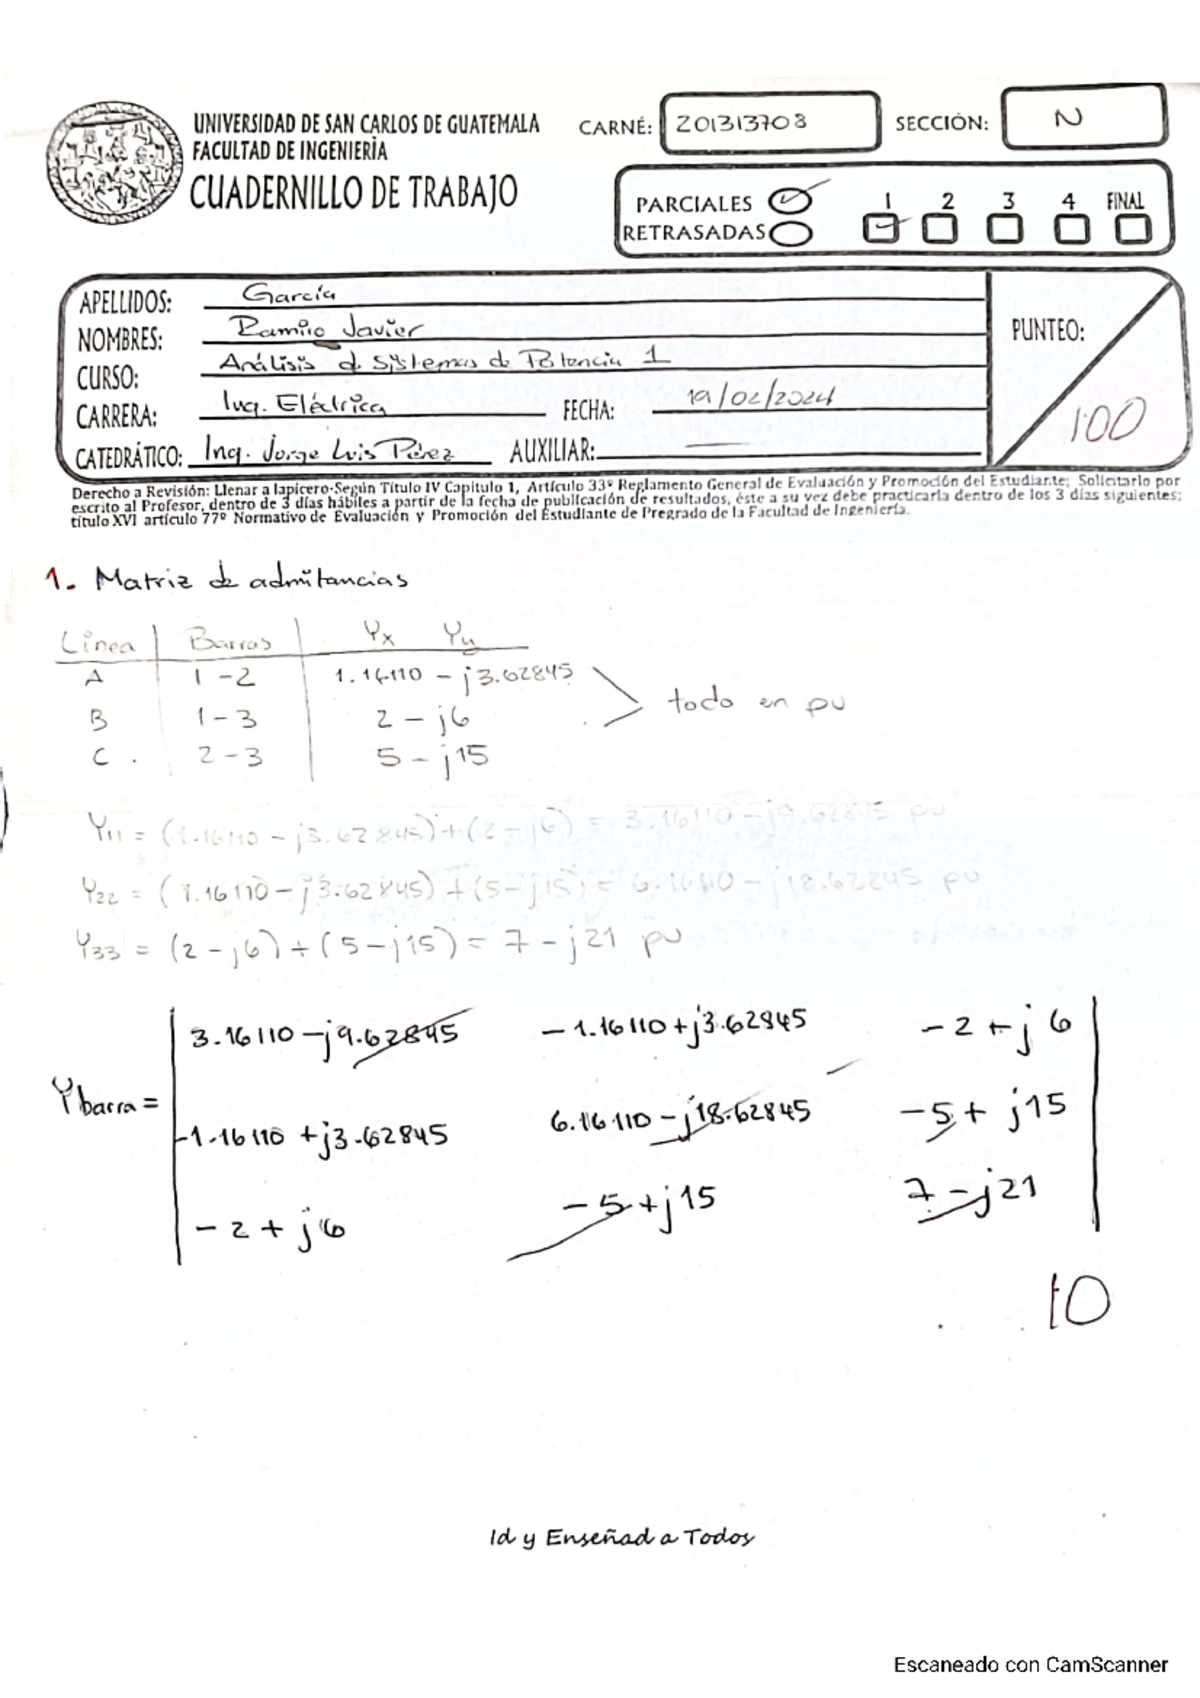 UNIVERSIDAD DE SAN CARLOS DE GUATEMALA
FACULTAD DE INGENIERÍA
CUADERNILLO DE TRABAJO
CARNÉ: 201313708 SECCIÓN: N
PARCIALES 1 2 3 4 FINAL
RETRASADAS
APELLIDOS: García
NOMBRES: Ramiro Javier
CURSO: Análisis de Sistemas de Potencia 1
CARRERA: Ing. Eléctrica FECHA: 19/02/2024
CATEDRÁTICO: Ing. Jorge Luis Pérez AUXILIAR:
PUNTEO: 100
Derecho a Revisión: Llenar a lapicero-Según Título IV Capitulo 1, Artículo 33º Reglamento General de Evaluación y Promoción del Estudiante; Solicitarlo por
escrito al Profesor, dentro de 3 días hábiles a partir de la fecha de publicación de resultados, éste a su vez debe practicarla dentro de los 3 días siguientes;
título XVI artículo 77º Normativo de Evaluación y Promoción del Estudiante de Pregrado de la Facultad de Ingeniería.
1. Matriz de admitancias
Línea Barras Yx Yy
A 1-2 1.16110 - j3.62845
B 1-3 2 - j6
C 2-3 5 - j15
todo en pu
Y11 = (1.16110 - j3.62845) + (2 - j6) = 3.16110 - j9.62845 pu
Y22 = (1.16110 - j3.62845) + (5 - j15) = 6.16110 - j18.62845 pu
Y33 = (2 - j6) + (5 - j15) = 7 - j21 pu
3.16110 - j9.62845 -1.16110 + j3.62845 -2 + j6
Ybarra = -1.16110 + j3.62845 6.16110 - j18.62845 -5 + j15
-2 + j6 -5 + j15 7 - j21
10
Id y Enseñad a Todos
Escaneado con CamScanner